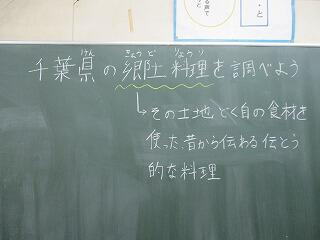 千葉県の郷土料理を調べよう
けん きょうど りょうり
↳その土地どく自の食材を
使った、昔から伝わる伝とう
的な料理